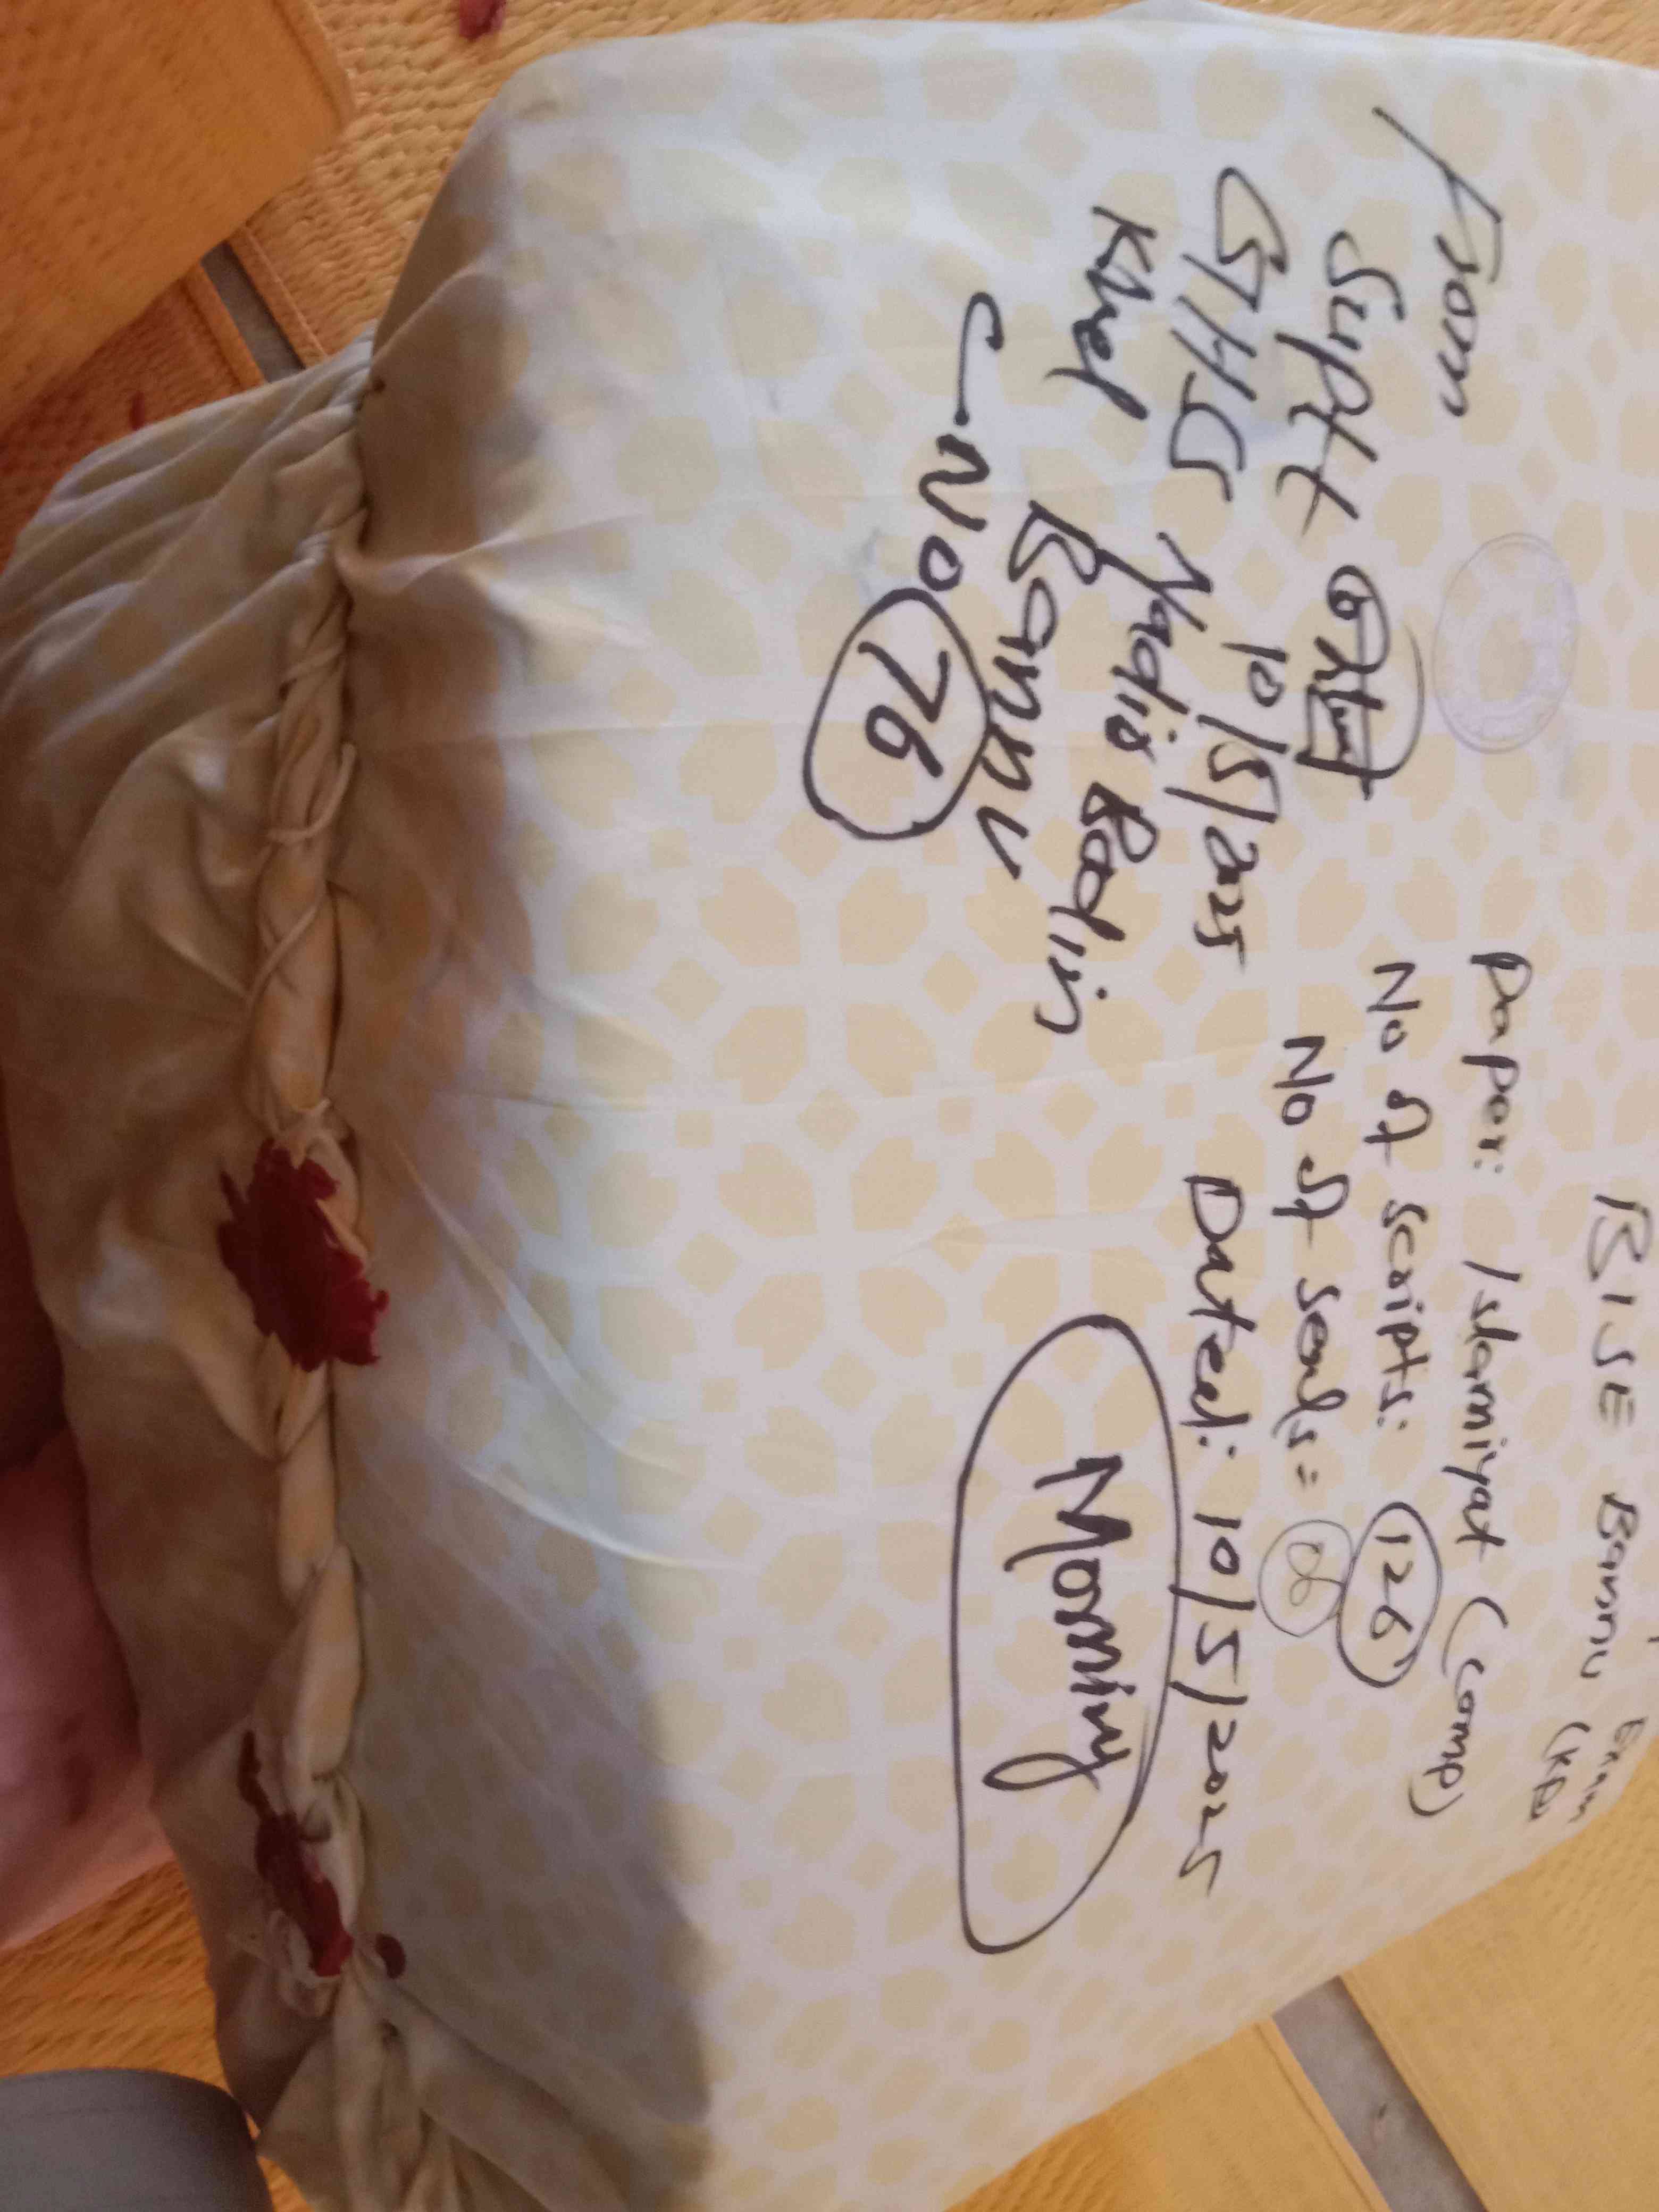 Exam
BISE Bannu (KP)
Paper: Islamiyat (Comp)
No of scripts: 126
No of seals =
Dated: 10/5/2025
Morning
From
Supt
10/5/2025
GHS Nadir Bodin
Khel Bannu
No 76